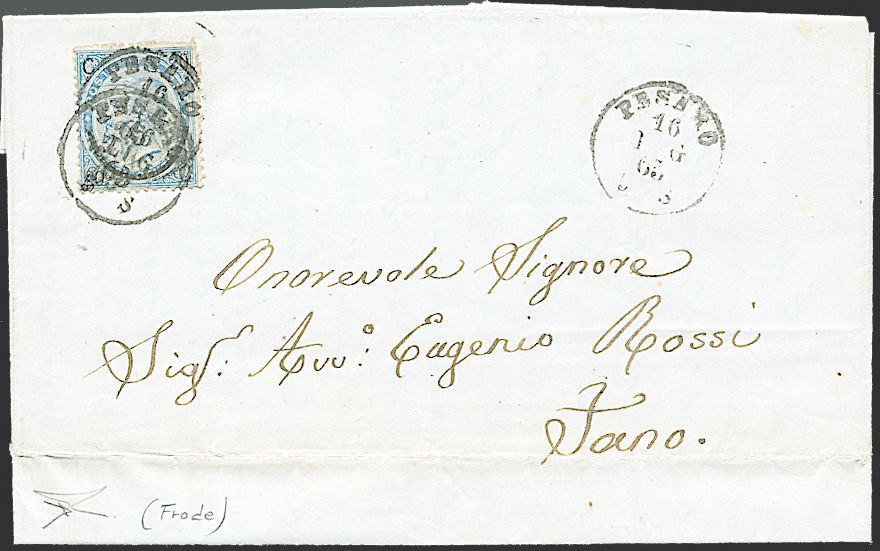 PESARO
16
PESARO
16
65
S
Onorevole Signore
Sigr: Avv:º Eugenio Rossi
Fano.
(Frode)